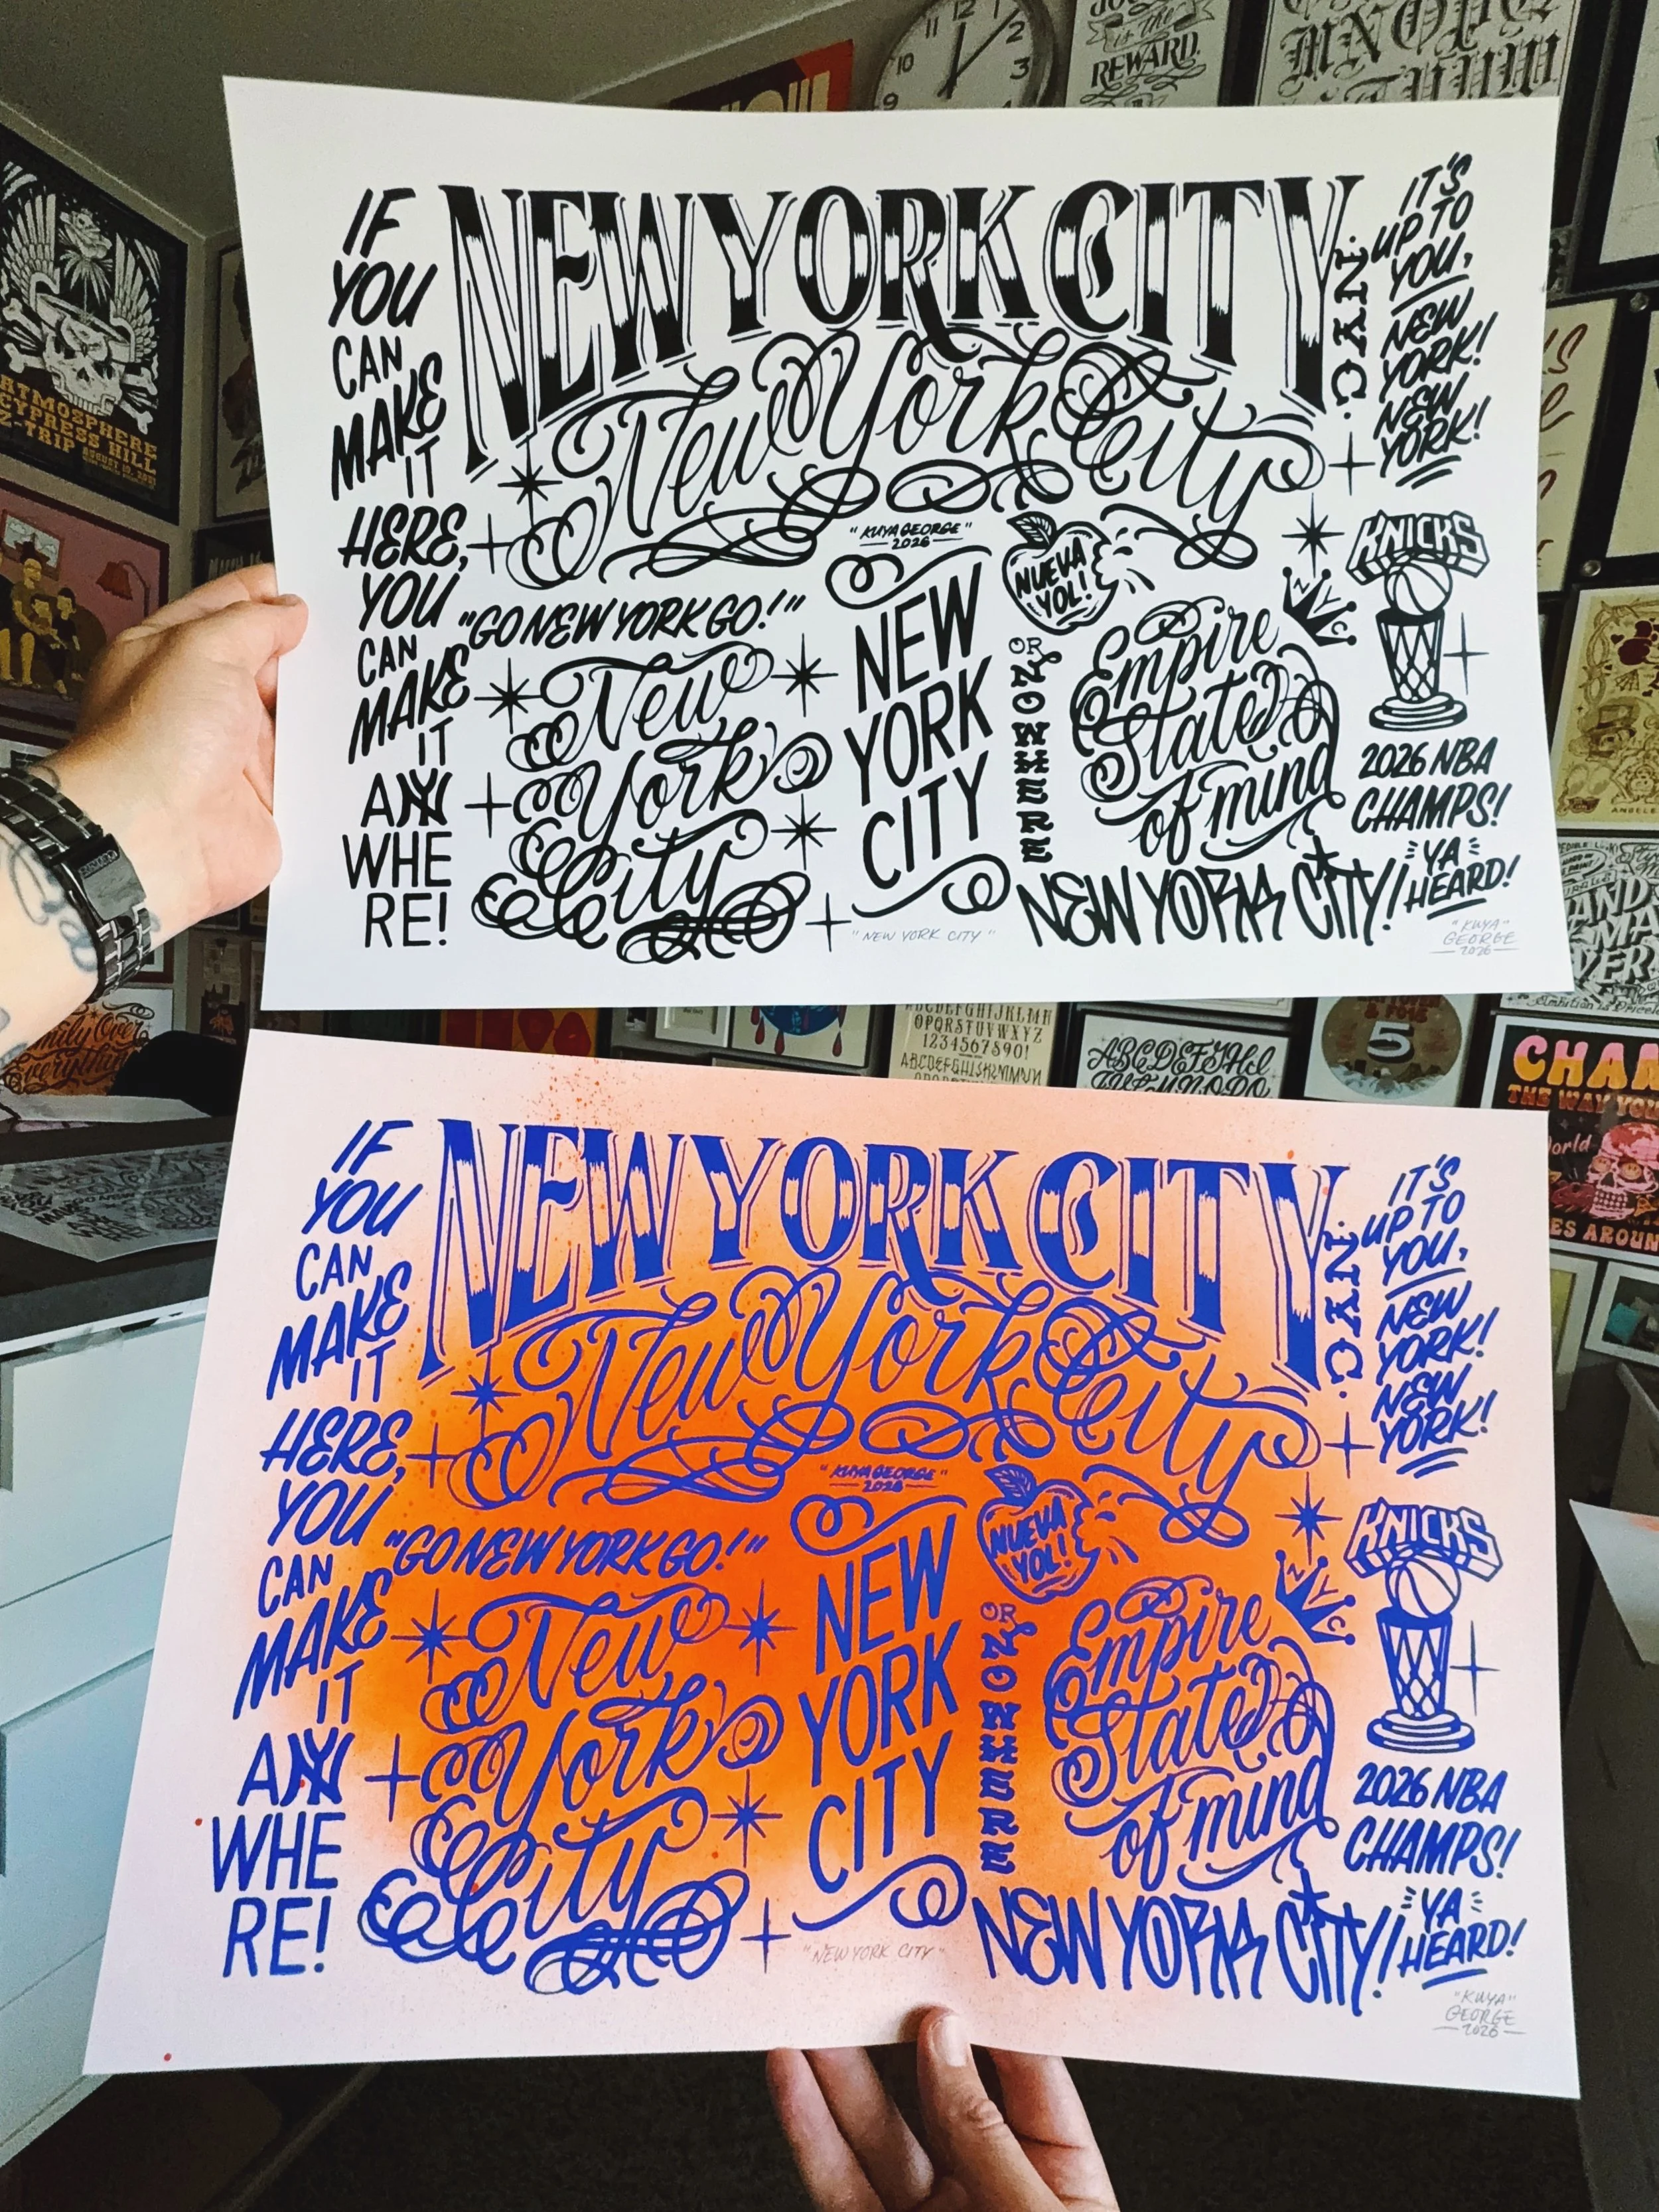 12
1
11
2
10
3
9
REWARD.
is the
ATMOSPHERE
CYPRESS HILL
Z-TRIP
IF
YOU
CAN
MAKE
IT
HERE,
YOU
CAN
MAKE
IT
ANY
WHE
RE!
NEW YORK CITY
New York City
"KUYAGEORGE"
2026
"GO NEW YORK GO!"
New
York
City
NEW
YORK
CITY
"NEW YORK CITY"
NUEVA
YOL!
OR
NOWHERE
Empire
State
of mind
NYC
NEW YORK CITY!
.NYC.
IT'S
UP TO
YOU,
NEW
YORK!
NEW
YORK!
KNICKS
2026 NBA
CHAMPS!
YA
HEARD!
"KUYA"
GEORGE
2026
Family Over
Everything
ABCDEFGHIJKLMN
OPQRSTUVWXYZ
1234567890!
5
CHAN
THE WAY YOU
World
ES AROUN
IF
YOU
CAN
MAKE
IT
HERE,
YOU
CAN
MAKE
IT
ANY
WHE
RE!
NEW YORK CITY
New York City
"KUYAGEORGE"
2026
"GO NEW YORK GO!"
New
York
City
NEW
YORK
CITY
"NEW YORK CITY"
NUEVA
YOL!
OR
NOWHERE
Empire
State
of mind
NYC
NEW YORK CITY!
.NYC.
IT'S
UP TO
YOU,
NEW
YORK!
NEW
YORK!
KNICKS
2026 NBA
CHAMPS!
YA
HEARD!
"KUYA"
GEORGE
2026